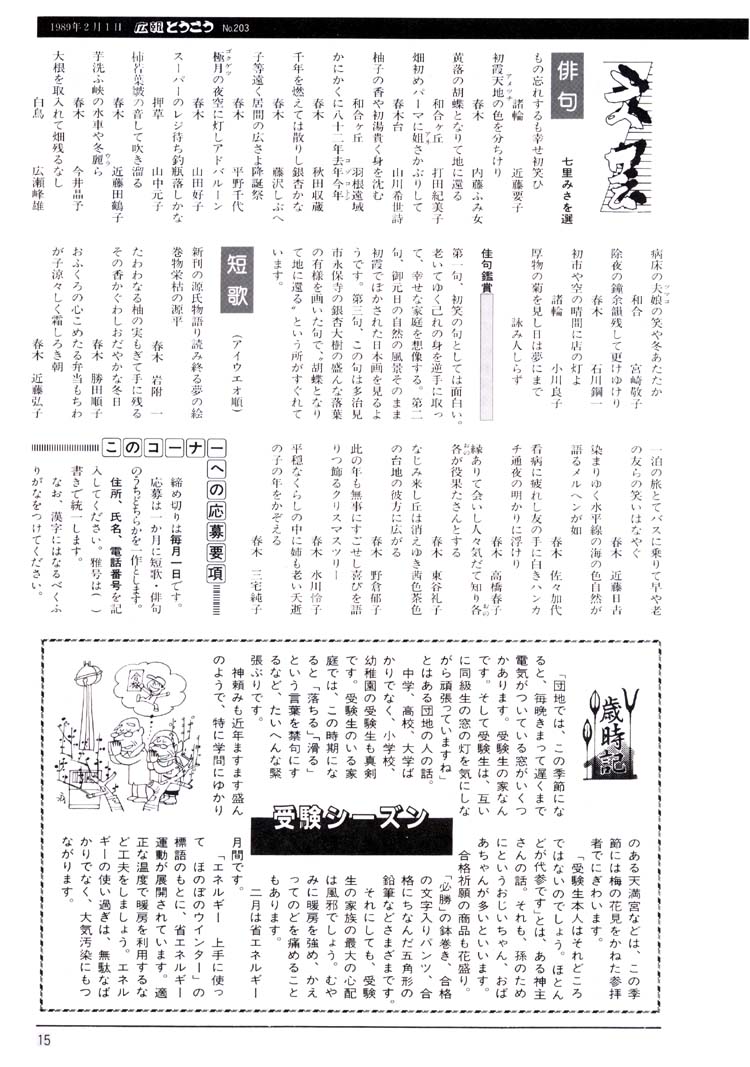 1989年2月1日 広報とうごう No.203
文芸
俳句
七里みさを選
もの忘れするも幸せ初笑ひ
諸輪 近藤要子
初霞天地の色を分ちけり
アメツチ
春木 内藤ふみ女
黄落の胡蝶となりて地に還る
和合ヶ丘 打田紀美子
畑初めパーマに姐さかぶりして
春木台 山川希世詩
柚子の香や初湯貴く身を沈む
和合ヶ丘 羽根遠域
かにかくに八十二年去年今年
コゾコトシ
春木 秋田収蔵
千年を燃えては散りし銀杏かな
春木 藤沢しぶへ
子等遠く居間の広さよ降誕祭
春木 平野千代
極月の夜空に灯しアドバルーン
ゴクゲツ
春木 山田好子
スーパーのレジ待ち釣瓶落しかな
押草 山中元子
柿若葉鬢の音して吹き溜る
春木 近藤田鶴子
芋洗ふ峡の水車や冬麗ら
ウラ
春木 今井晶子
大根を取入れて畑残るなし
白鳥 広瀬峰雄
病床の夫娘の笑や冬あたたか
ツマコ
和合 宮崎敬子
除夜の鐘余韻残して更けゆけり
春木 石川鋼一
初市や空の晴間に店の灯よ
諸輪 小川良子
厚物の菊を見し日は夢にまで
詠み人しらず
佳句鑑賞
第一句、初笑の句としては面白い。
老いてゆく己れの身を逆手に取っ
て、幸せな家庭を想像する。第二
句、御元日の自然の風景そのまま
初霞でぼかされた日本画を見るよ
うです。第三句、この句は多治見
市永保寺の銀杏大樹の盛んな落葉
の有様を画いた句で〝胡蝶となり
て地に還る〟という所がすぐれて
います。
短歌
(アイウエオ順)
新刊の源氏物語り読み終る夢の絵
巻物栄枯の源平
春木 岩附 一
たわわなる柚の実もぎて手に残る
その香かぐわしおだやかな冬日
春木 勝田順子
おふくろの心こめたる弁当もちわ
が子涼々しく霜しろき朝
春木 近藤弘子
一泊の旅とてバスに乗りて早や老
の友らの笑いはなやぐ
春木 近藤日古
染まりゆく水平線の海の色自然が
語るメルヘンが如
春木 佐々加代
看病に疲れし友の手に白きハンカ
チ通夜の明かりに浮けり
春木 高橋春子
縁ありて会いし人々気だて知り各
おの
各が役果たさんとする
おの
春木 東谷礼子
なじみ来し丘は消えゆき茜色茶色
の台地の彼方に広がる
春木 野倉郁子
此の年も無事にすごせし喜びを語
りつ飾るクリスマスツリー
春木 水川怜子
平穏なくらしの中に姉も老い夭逝
の子の年をかぞえる
春木 三宅純子
このコーナーへの応募要項
締め切りは毎月一日です。
応募は一か月に短歌・俳句
のうちどちらかを一作とします。
住所、氏名、電話番号を記
入してください。雅号は( )
書きで統一します。
なお、漢字にはなるべくふ
りがなをつけてください。
歳時記
受験シーズン
「団地では、この季節にな
ると、毎晩きまって遅くまで
電気がついている窓がいくつ
かあります。受験生の家なん
です。そして受験生は、互い
に同級生の窓の灯を気にしな
がら頑張っていますね」
とはある団地の人の話。
中学、高校、大学ば
かりでなく、小学校、
幼稚園の受験生も真剣
です。受験生のいる家
庭では、この時期にな
ると「落ちる」「滑る」
という言葉を禁句にす
るなど、たいへんな緊
張ぶりです。
神頼みも近年ますます盛ん
のようで、特に学問にゆかり
合格
のある天満宮などは、この季
節には梅の花見をかねた参拝
者でにぎわいます。
「受験生本人はそれどころ
ではないのでしょう。ほとん
どが代参です」とは、ある神主
さんの話。それも、孫のため
にというおじいちゃん、おば
あちゃんが多いといいます。
合格祈願の商品も花盛り。
「必勝」の鉢巻き、合格
の文字入りパンツ、合
格にちなんだ五角形の
鉛筆などさまざまです。
それにしても、受験
生の家族の最大の心配
は風邪でしょう。むや
みに暖房を強め、かえ
ってのどを痛めること
もあります。
二月は省エネルギー
月間です。
「エネルギー 上手に使っ
て ほのぼのウインター」の
標語のもとに、省エネルギー
運動が展開されています。適
正な温度で暖房を利用するな
ど工夫をしましょう。エネル
ギーの使い過ぎは、無駄なば
かりでなく、大気汚染にもつ
ながります。
15